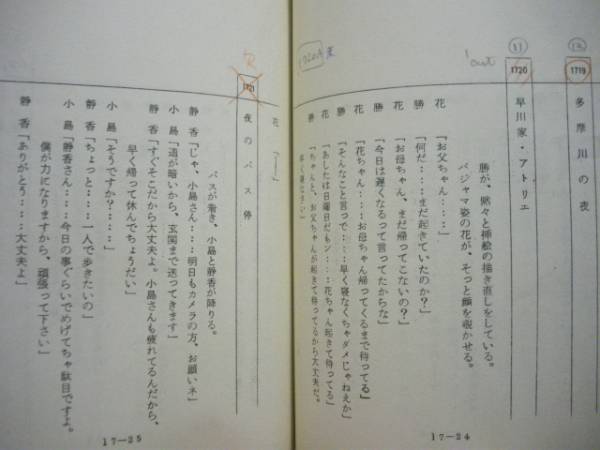 ⑫
1719
多摩川の夜
⑪
1720
早川家・アトリエ
1 cut
勝が、黙々と挿絵の描き直しをしている。
パジャマ姿の花が、そっと顔を覗かせる。
花「お父ちゃん……」
勝「何だ……まだ起きていたのか?」
花「お母ちゃん、まだ帰ってこないの?」
勝「今日は遅くなるって言ってたからな」
花「花ちゃん……お母ちゃん帰ってくるまで待ってる」
勝「そんなこと言って……早く寝なくちゃダメじゃねえか」
花「あしたは日曜日だもン……花ちゃん起きて待ってる」
勝「ちゃんと、お父ちゃんが起きて待ってるから大丈夫だ。
早く寝なさい」
17—24
花「……」
1721
夜のバス停
バスが着き、小島と静香が降りる。
静香「じゃ、小島さん……明日もカメラの方、お願いネ」
小島「道が暗いから、玄関まで送ってきます」
静香「すぐそこだから大丈夫よ。小島さんも疲れてるんだから、
早く帰って休んでちょうだい」
小島「そうですか?……」
静香「ちょっと……一人で歩きたいの」
小島「静香さん……今日の事ぐらいでめげてちゃ駄目ですよ。
僕が力になりますから、頑張って下さい」
静香「ありがとう……大丈夫よ」
17—25